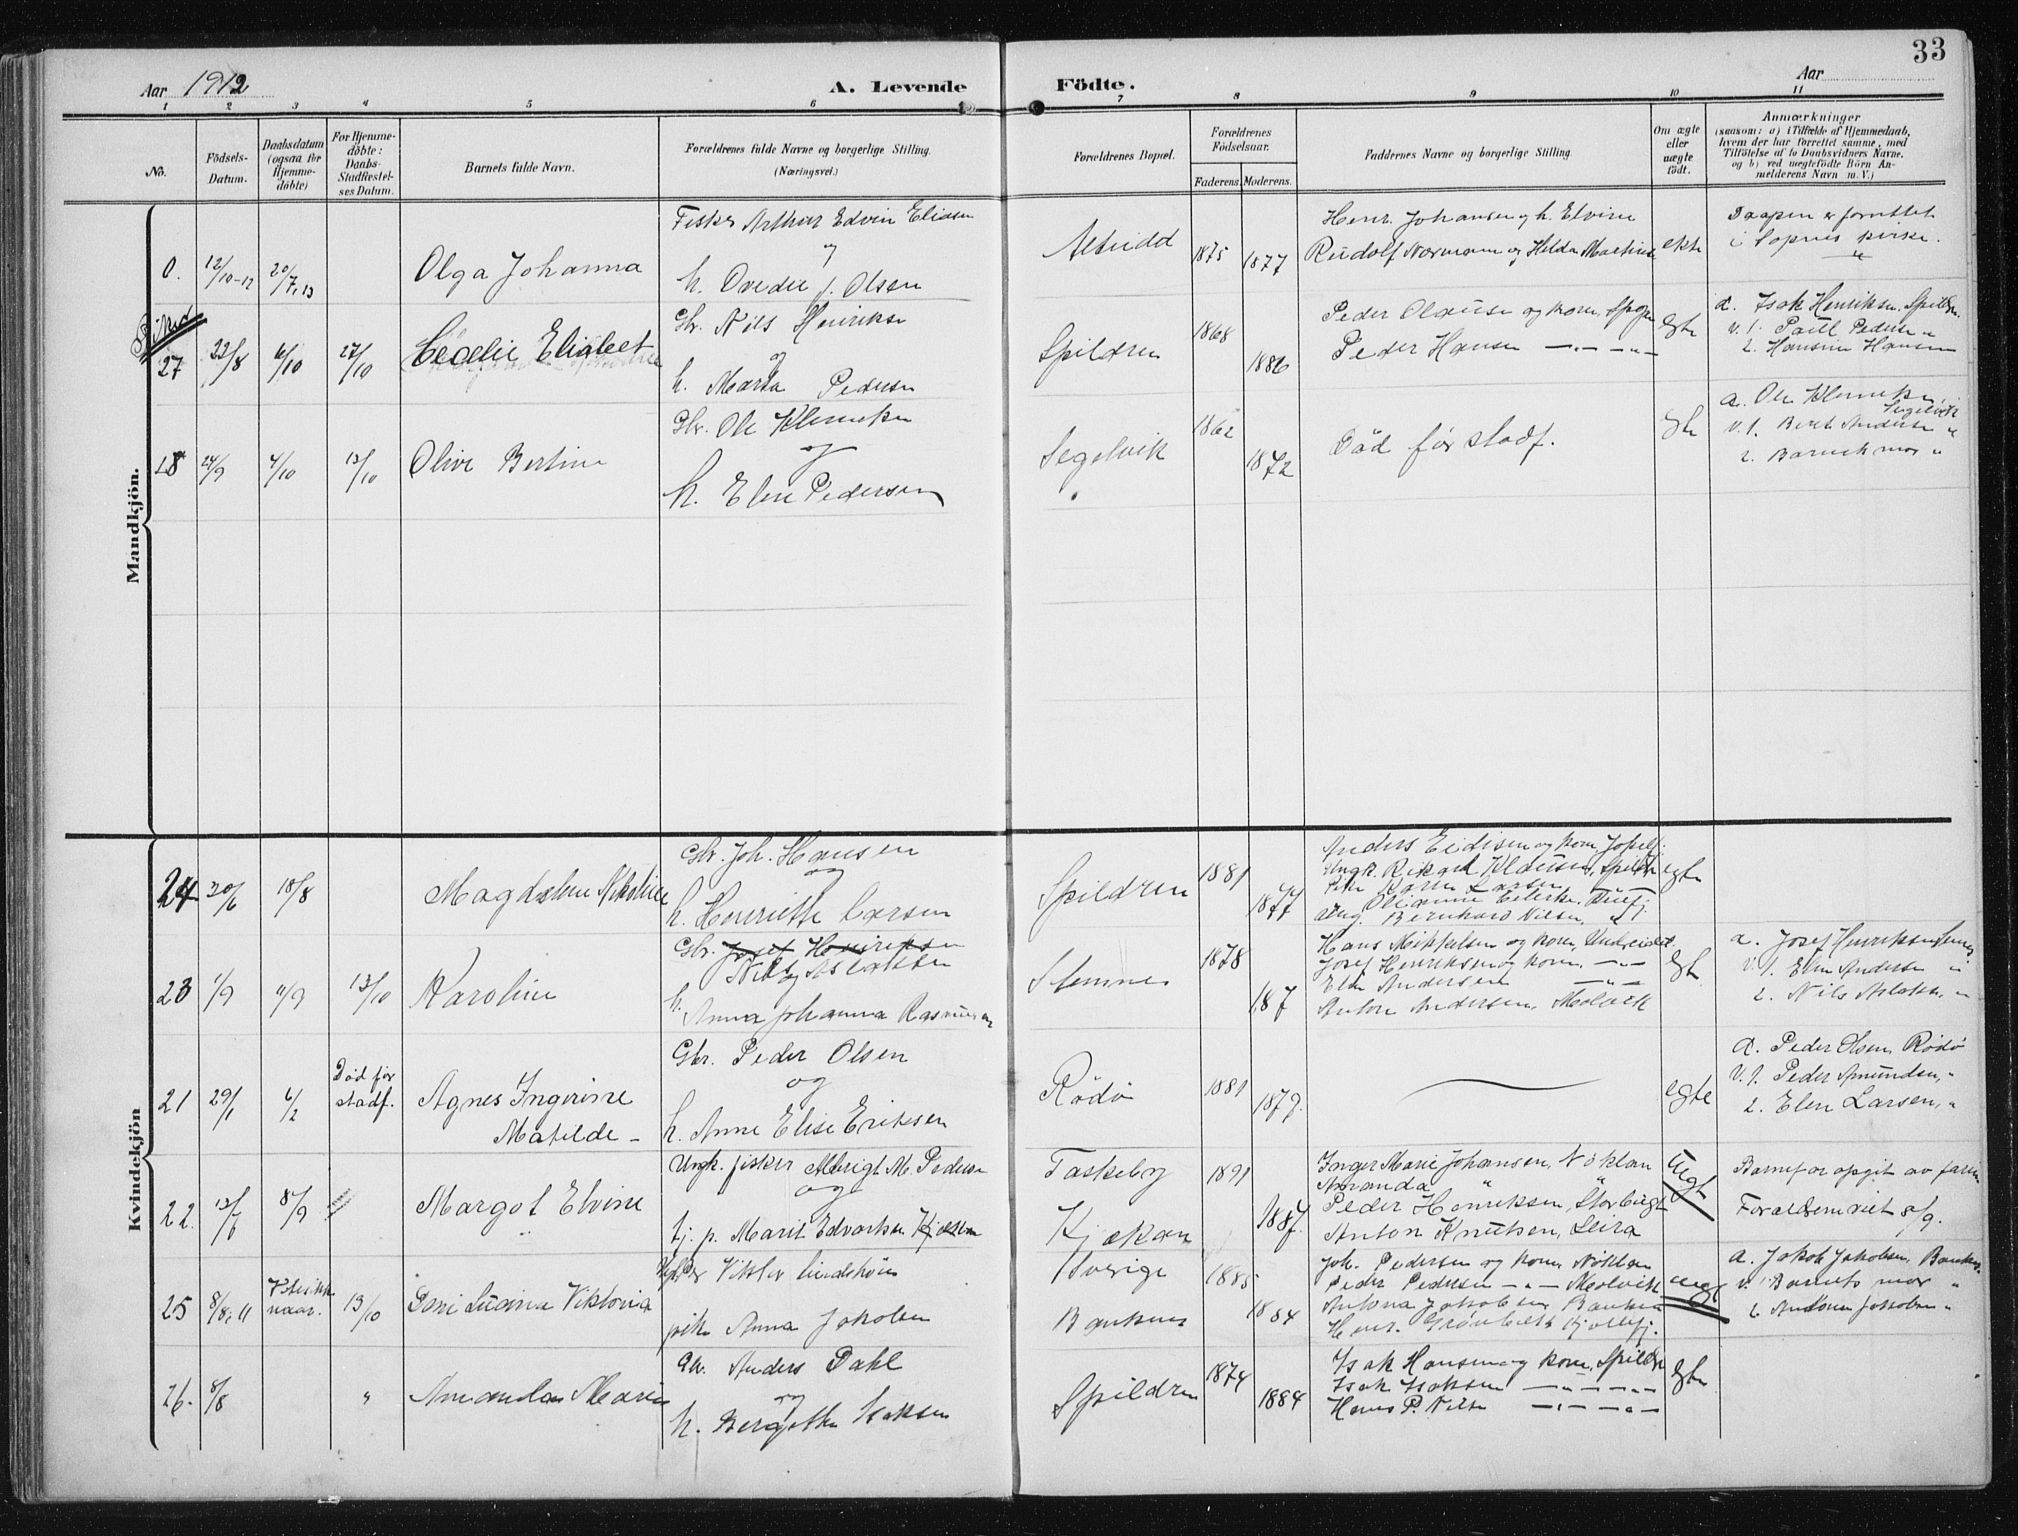 33
Aar 1912
A. Levende
Födte.
Aar
1 2 3 4 5 6 7 8 9 10 11
No.
Födsels-Datum.
Daabsdatum (ogsaa for Hjemmedöbte)
For Hjemmedöbte: Daabs-Stadfæstelses Datum.
Barnets fulde Navn.
Forældrenes fulde Navne og borgerlige Stilling. (Næringsvei.)
Forældrenes Bopæl.
Forældrenes Födselsaar.
Faderens. Moderens.
Faddernes Navne og borgerlige Stilling.
Om ægte eller uægte födt.
Anmærkninger
(saasom: a) i Tilfælde af Hjemmedaab,
hvem der har forrettet samme, med
Tilföielse af to Daabsvidners Navne,
og b) ved uegtefödte Börn An-
melderens Navn m. V.)
Mandkjön.
0. 12/10-12 20/7.13 Olga Johanna
Fisker Arthur Edvin Eliasen
og
h. Ovedie J. Olsen
Alteidd 1875 1877
Henr. Johansen og h. Elvine
Rudolf Normann og Hilda
ekte
Daapen er forrettet
i Sopnes kirke.
Piker
27 22/8 6/10 27/10 Cecelie Elisabet
Gbr. Nils Henriksen
og
h. Marta Pedersen
Spildren 1868 1886
Peder Olausen og kone,
Peder Hansen — " — " —
egte
a. Isak Henriksen, Spildren
v. 1. Paul Pedersen "
2. Hansine Hansen
28 24/9 4/10 13/10 Olive Bertine
Gbr. Ole Klemetsen
og
h. Elen Pedersen
Segelvik 1862 1872
Död før stadf.
egte
a. Ole Klemetsen,
Segelvik
v. 1. Berit Andersen "
2. Barnets mor "
Kvindekjön
24 30/6 18/8 Magdalene Nikoline
Gbr. Joh. Hansen
og
h. Henriette Larsen
Spildren 1881 1877
Anders Eidisen og kone,
Ungk. Rikard Klausen, Spildren
Pike Karen Larsen
Ung. Bernhard Nilsen, "
egte
23 1/9 11/9 13/10 Karoline
Gbr. Josef Henriksen
Nils Aslaksen
og
h. Anna Johanna Rasmussen
Stemnes 1878 187
Hans Mikkelsen og kone,
Josef Henriksen og kone, — " —
Elen Andersen — " —
Anton Andersen, Molvik
egte
a. Josef Henriksen,
v. 1. Elen Andersen "
2. Nils Aslaksen, "
21 29/1 6/2 Död før stadf. Agnes Ingerine
Matilde —
Gbr. Peder Olsen
og
h. Anne Elise Eriksen
Rødø 1881 1879.
egte
a. Peder Olsen, Rødø
v. 1. Peder Amundsen, "
2. Elen Larsen, "
22. 8/9 Margot Elvine
Ungk. fisker Albrigt M. Pedersen
og
tj. p. Marit Edvardsen
Taskeby 1891
Kjækan 1887.
Inger Marie Johansen, Nöklan
Amanda "
Peder Henriksen, Storbugt
Anton Knutsen, Leira
Uegt
Barnefar opgit av faren
8/9.
25 8/8, 11 13/10 Viktoria
Viktor
pike Anna Jakobsen
Sverige 1885
Bankenes 1884
Joh. Pedersen og kone, Nöklan
Peder Pedersen — " — Molvik
Antona Jakobsen,
Henr.
uegt
a. Jakob Jakobsen,
v. 1 Barnets mor "
2. Antona Jakobsen "
26. 8/8 " Amanda Marie
Gbr. Anders Dahl
og
h. Bergithe Isaksen
Spildren 1874 1884
Isak Hansen og kone, Spildren
Isak Isaksen — " — " —
Hans P. Nilsen — " — " —
egte